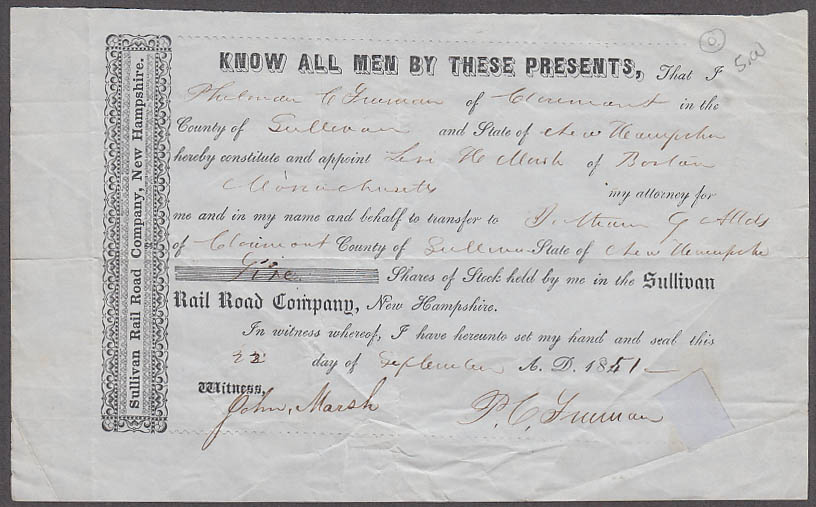 Sullivan Rail Road Company, New Hampshire.
5.00
KNOW ALL MEN BY THESE PRESENTS, That I
C Freeman of Claremont in the
County of Sullivan and State of New Hampshire
hereby constitute and appoint Levi H Marsh of Boston
Massachusetts my attorney for
me and in my name and behalf to transfer to G
of Claremont County of Sullivan State of New Hampshire
Five Shares of Stock held by me in the Sullivan
Rail Road Company, New Hampshire.
In witness whereof, I have hereunto set my hand and seal this
22 day of September A. D. 1851
Witness,
John Marsh P. C. Freeman